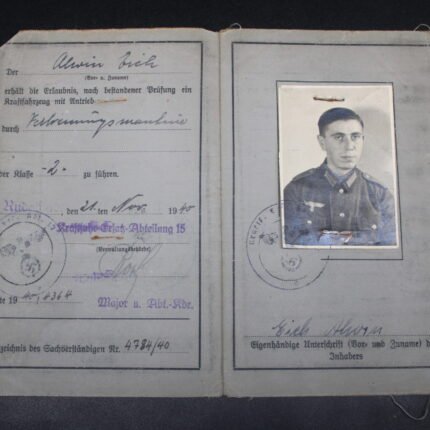 Der Alwin Eich
(Vor- u. Zuname)
erhält die Erlaubnis, nach bestandener Prüfung ein
Kraftfahrzeug mit Antrieb
durch Verbrennungsmaschine
der Klasse -2- zu führen.
, den 21. ten Nov. 1940
Kraftfahr-Ersatz-Abteilung 15
(Verwaltungsbehörde)
Major u. Abt.-Kdr.
te 19 40/4364
zeichnis des Sachverständigen Nr. 4784/40
Eich Alwin
Eigenhändige Unterschrift (Vor- und Zuname) d
Inhabers